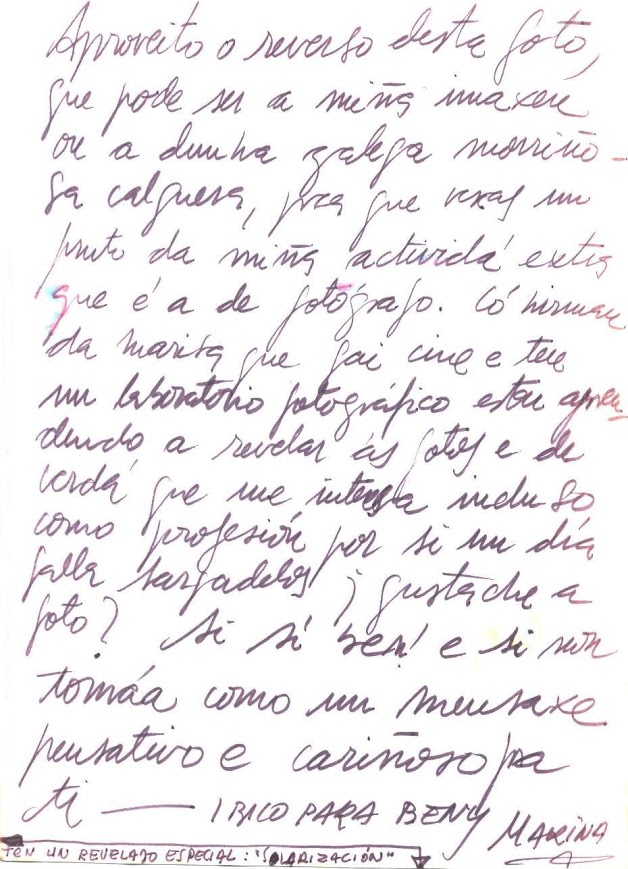 Aproveito o reverso desta foto,
que pode ser a miña imaxen
ou a dunha galega morriño-
sa calquera, pra que vexas un
punto da miña actividá extra
que é a de fotógrafo. Có hirman
da Marisa que fai cine e ten
un laboratorio fotográfico estou apren-
dendo a revelar ás fotos e de
verdá que me interesa incluso
como profesión por si un día
falla Sargadelos ¿gustache a
foto? Si sí ben! e si non
tomáa como un mensaxe
pensativo e cariñoso pra
ti — 1 BICO PARA BENY
MARINA
TEN UN REVELADO ESPECIAL: "SOLARIZACIÓN"